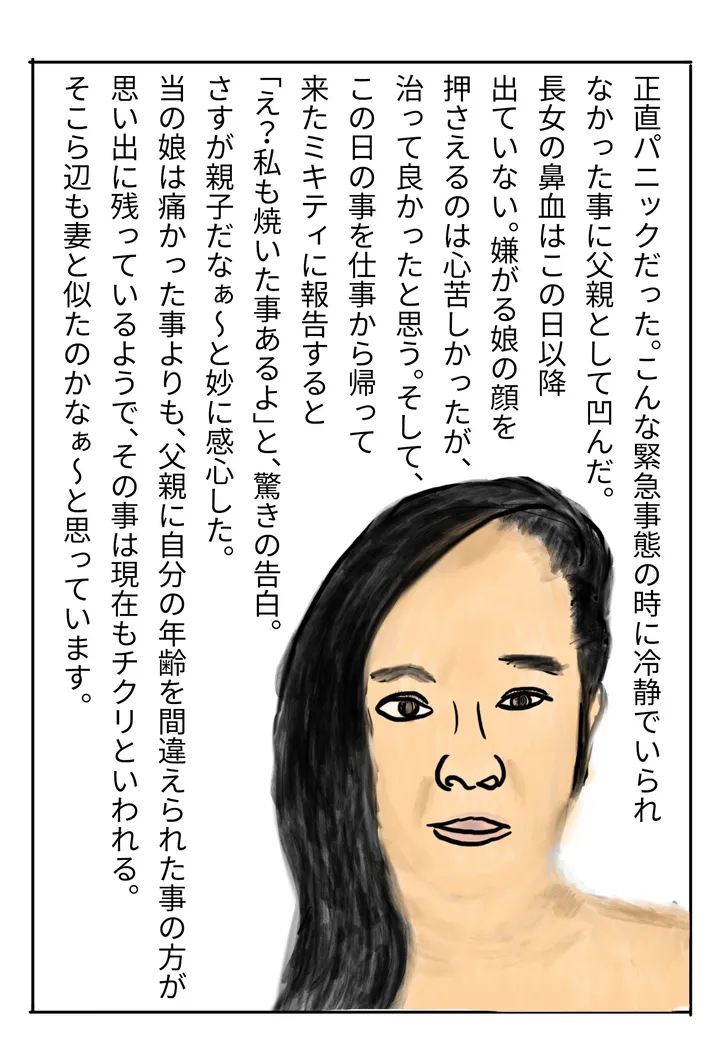 正直パニックだった。こんな緊急事態の時に冷静でいられ
なかった事に父親として凹んだ。
長女の鼻血はこの日以降
出ていない。嫌がる娘の顔を
押さえるのは心苦しかったが、
治って良かったと思う。そして、
この日の事を仕事から帰って
来たミキティに報告すると
「え?私も焼いた事あるよ」と、驚きの告白。
さすが親子だなぁ〜と妙に感心した。
当の娘は痛かった事よりも、父親に自分の年齢を間違えられた事の方が
思い出に残っているようで、その事は現在もチクリといわれる。
そこら辺も妻と似たのかなぁ〜と思っています。